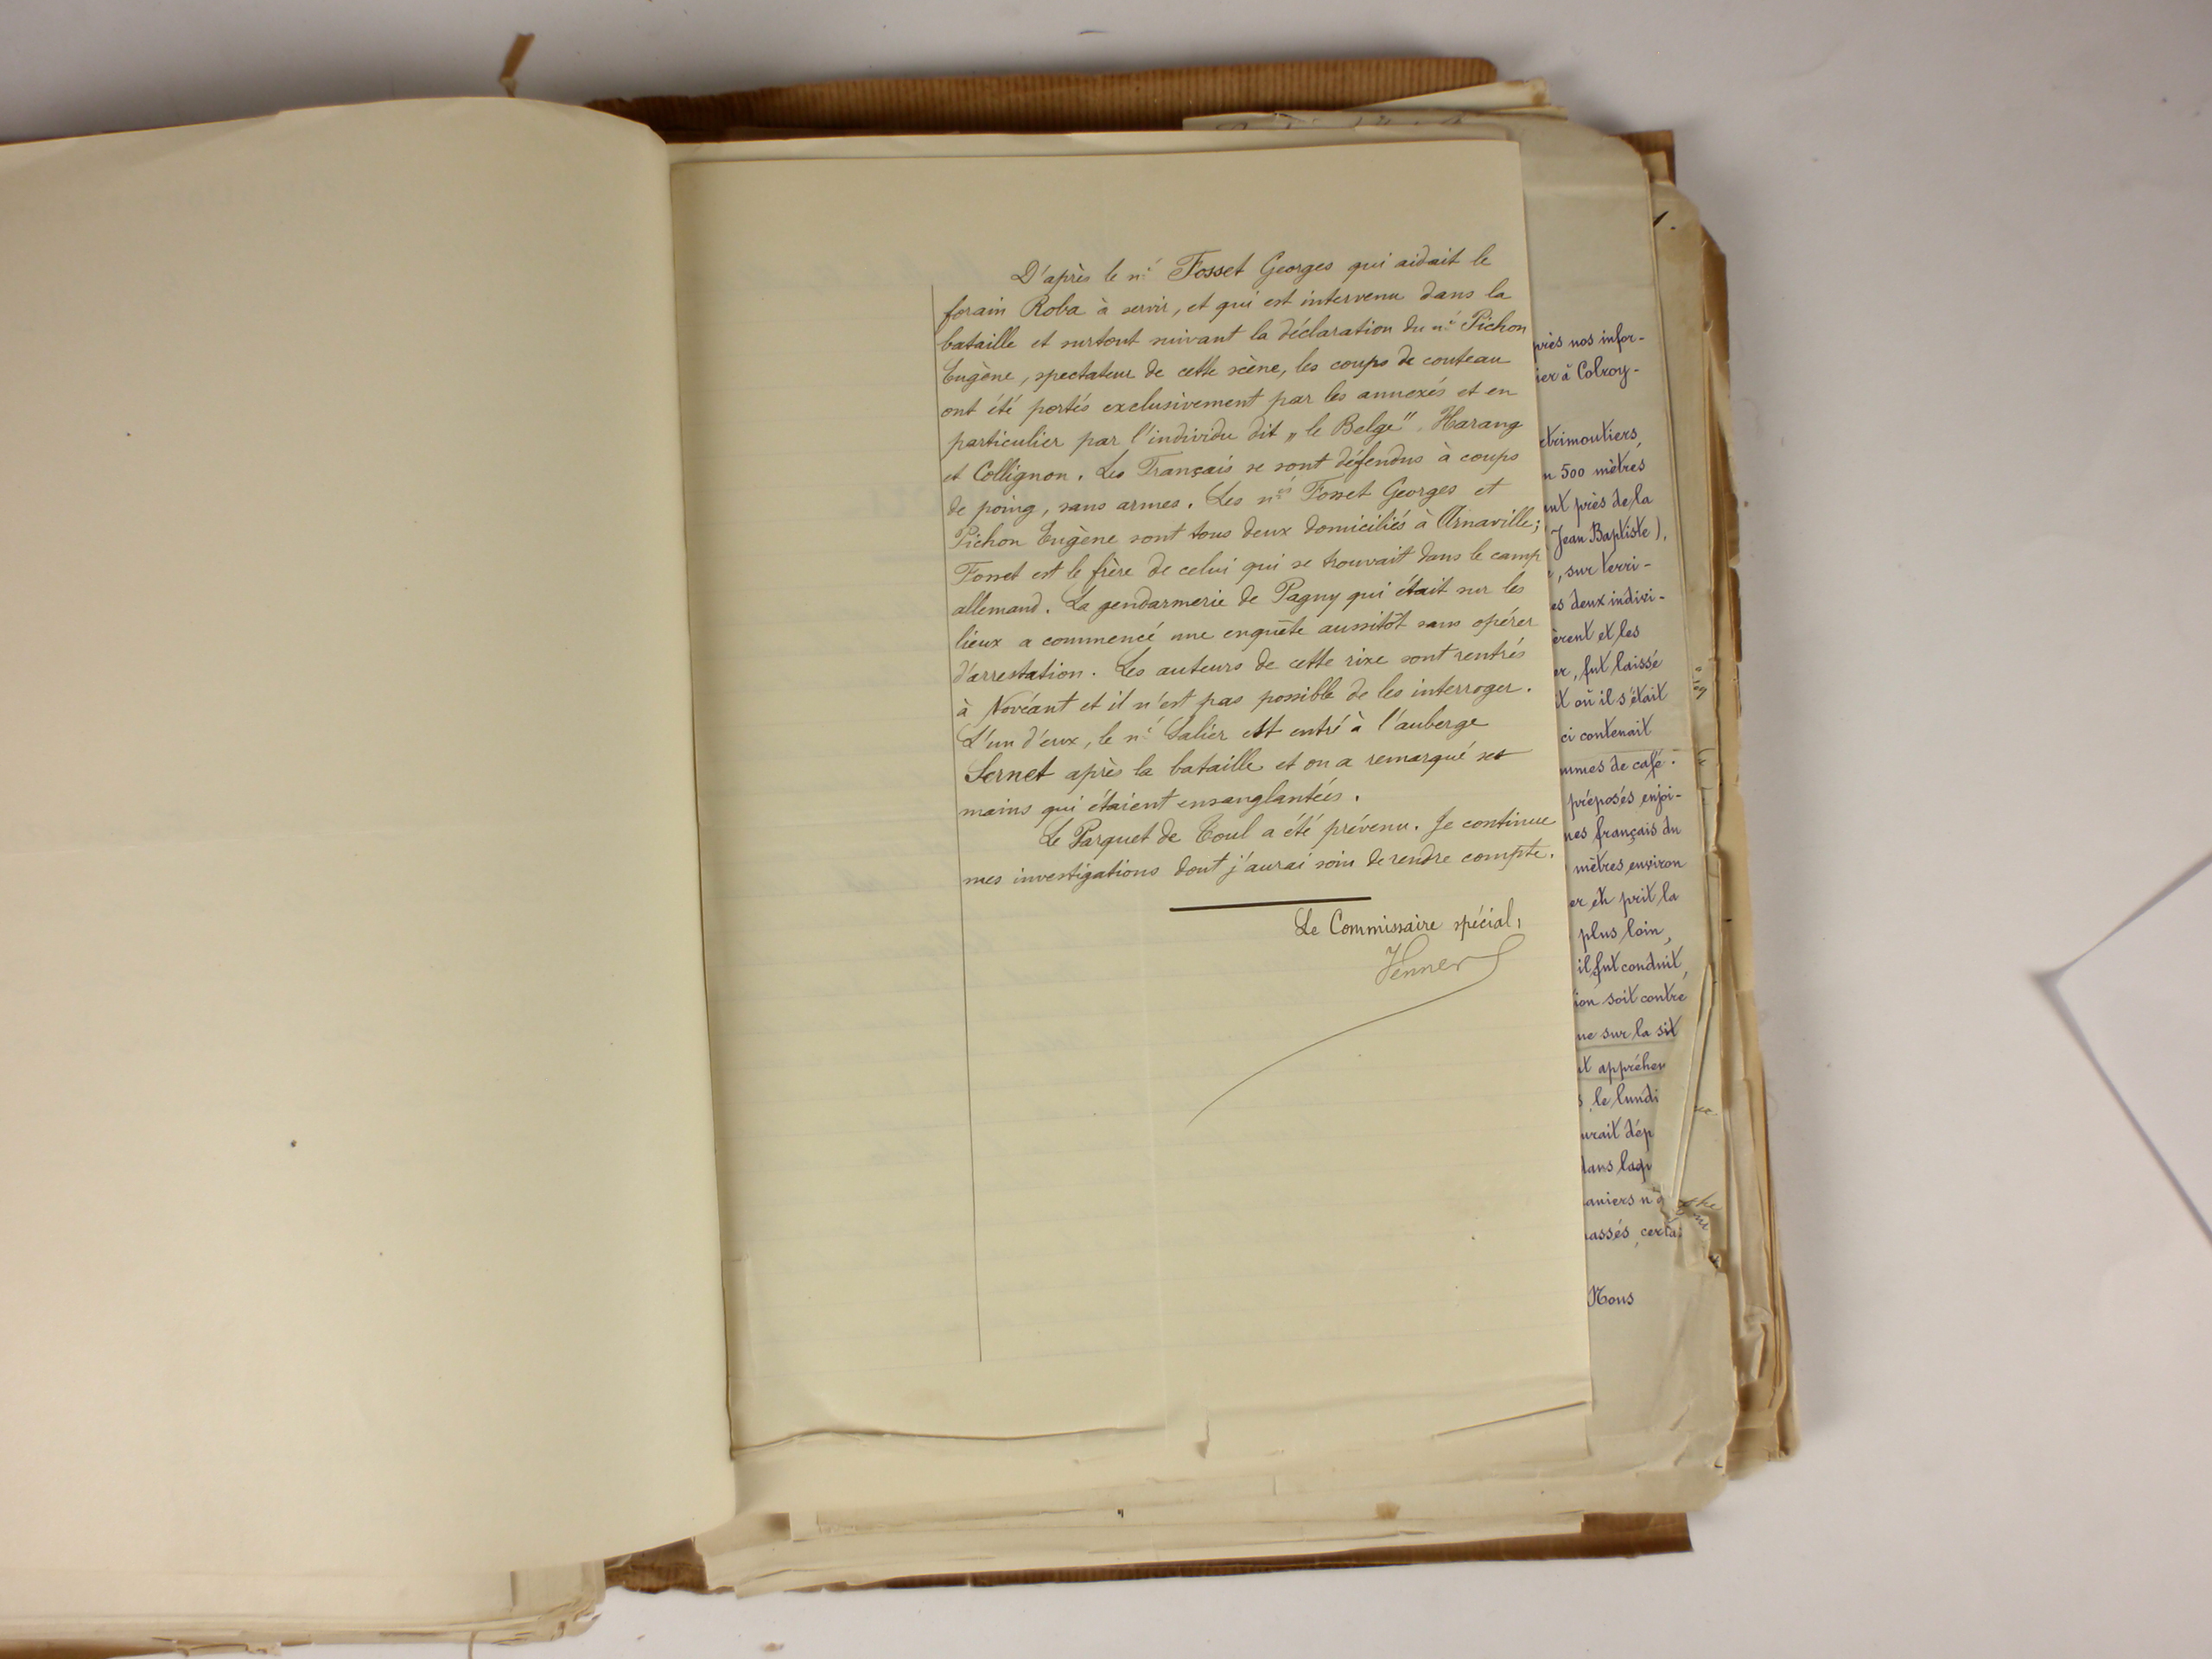 D'après le né Fosset Georges qui aidait le
forain Roba à servir, et qui est intervenu dans la
bataille et surtout suivant la déclaration du né Pichon
Eugène, spectateur de cette scène, les coups de couteau
ont été portés exclusivement par les annexés et en
particulier par l'individu dit „le Belge", Harang
et Collignon. Les Français se sont défendus à coups
de poing, sans armes. Les nés Fosset Georges et
Pichon Eugène sont tous deux domiciliés à Arnaville;
Fosset est le frère de celui qui se trouvait dans le camp
allemand. La gendarmerie de Pagny qui était sur les
lieux a commencé une enquête aussitôt sans opérer
d'arrestation. Les auteurs de cette rixe sont rentrés
à Novéant et il n'est pas possible de les interroger.
L'un d'eux, le né Salier est entré à l'auberge
Sernet après la bataille et on a remarqué ses
mains qui étaient ensanglantées.
Le Parquet de Toul a été prévenu. Je continue
mes investigations dont j'aurai soin de rendre compte.
Le Commissaire spécial,
Henner
1.
près nos infor-
ier à Colroy-
etrimoutiers,
n 500 mètres
ant près de la
Jean Baptiste),
, sur terri-
es deux indivi-
èrent et les
er, fut laissé
it où il s'était
ci contenait
ammes de café.
préposés enjoi-
nes français du
mètres environ
er et prit la
plus loin,
il fut conduit,
ion soit contre
ne sur la sit
nt appréhen
s le lundi
urait dép
dans laqu
aniers n'o
assés, certai
Nous